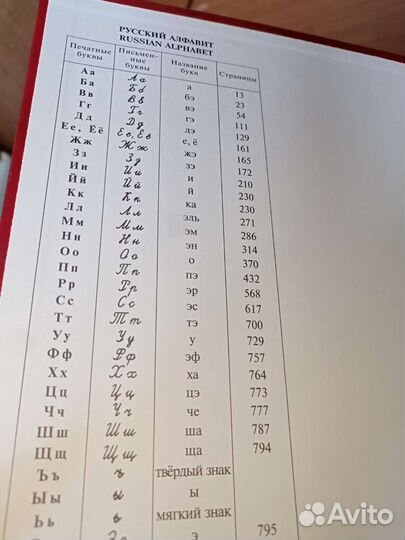 РУССКИЙ АЛФАВИТ
RUSSIAN ALPHABET
Печатные буквы Письмен-ные буквы Название букв Страницы
Аа Аа а 13
Бб Бб бэ 23
Вв Вв вэ 54
Гг Гг гэ 111
Дд Дд дэ 129
Ее, Ёё Ее, Ёё е, ё 161
Жж Жж жэ 165
Зз Зз зэ 172
Ии Ии и 210
Йй Йй й 230
Кк Кк ка 230
Лл Лл эль 271
Мм Мм эм 286
Нн Нн эн 314
Оо Оо о 370
Пп Пп пэ 432
Рр Рр эр 568
Сс Сс эс 617
Тт Тт тэ 700
Уу Уу у 729
Фф Фф эф 757
Хх Хх ха 764
Цц Цц цэ 773
Чч Чч че 777
Шш Шш ша 787
Щщ Щщ ща 794
Ъъ ъ твёрдый знак
Ыы ы ы
Ьь ь мягкий знак
э 795
Avito